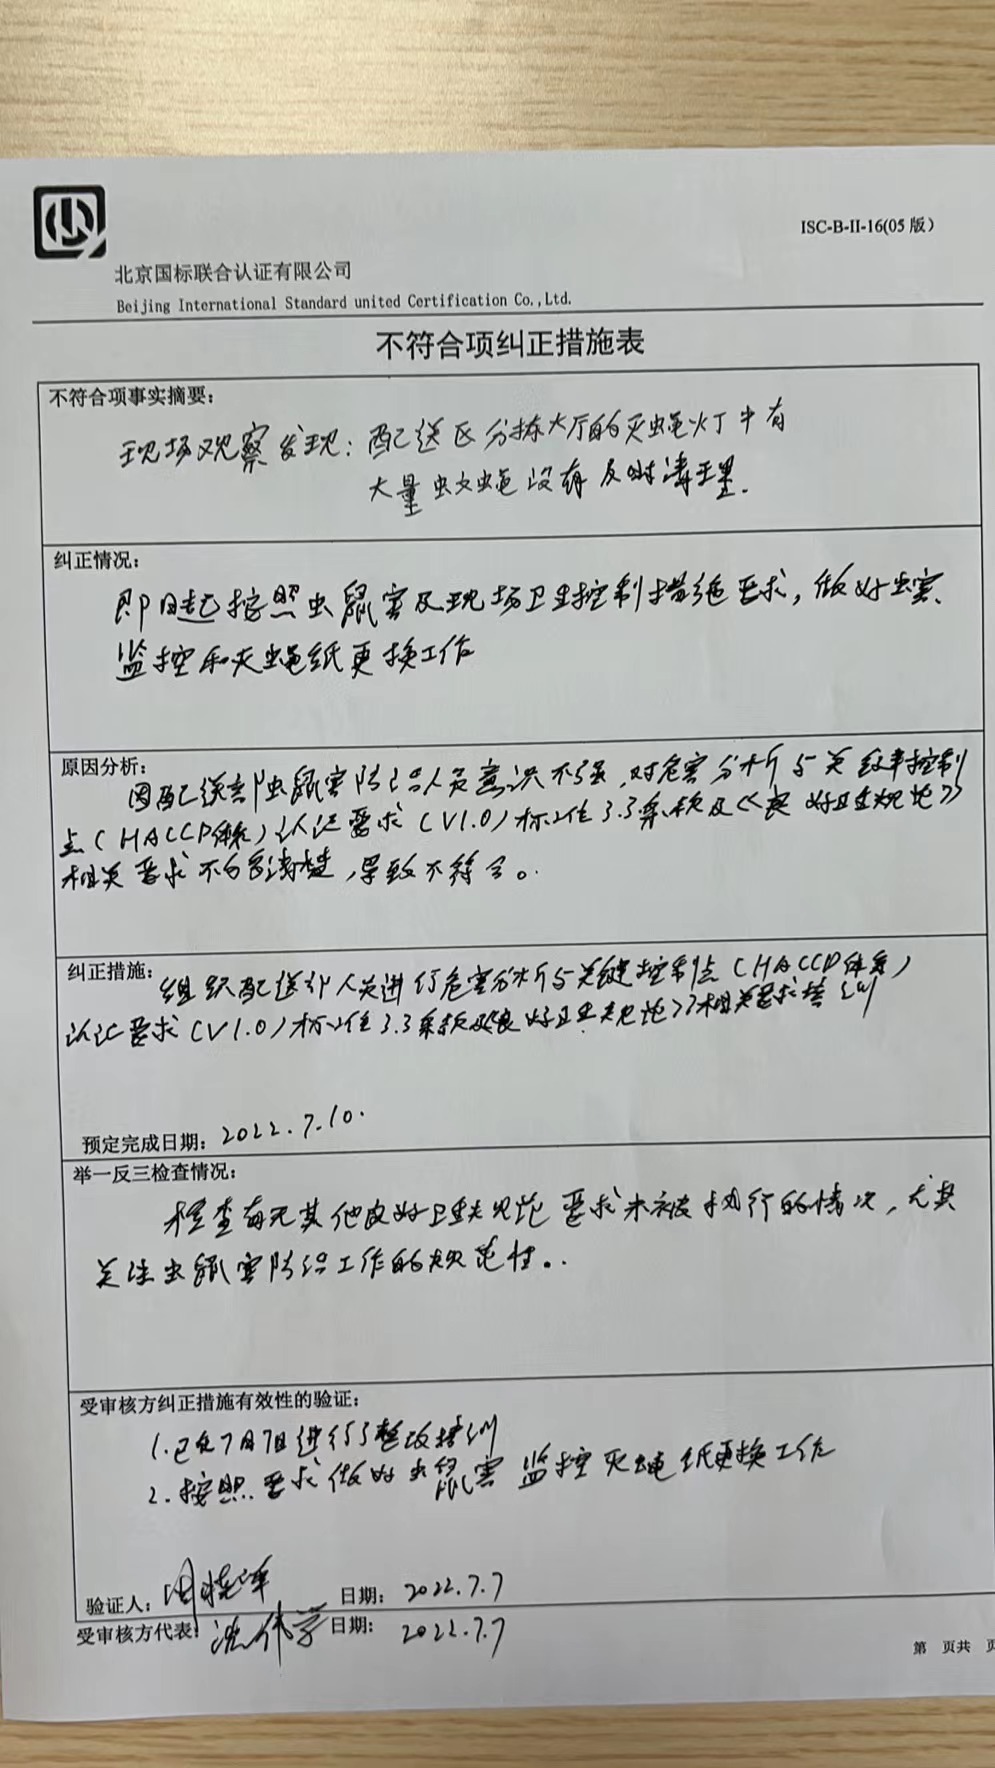 ISC-B-II-16(05 版)
北京国标联合认证有限公司
Beijing International Standard united Certification Co.,Ltd.
不符合项纠正措施表
不符合项事实摘要：
现场观察发现：配送区分拣大厅的灭蝇灯中有
大量蚊蝇没有及时清理.
纠正情况：
即日起按照虫鼠害及现场卫生控制措施要求，做好虫害
监控和灭蝇纸更换工作
原因分析：
因配送部虫鼠害防治人员意识不强,对危害分析与关键控制
点(HACCP体系)认证要求(V1.0)标准3.3条款及《良好卫生规范》
相关要求不够清楚,导致不符合。
纠正措施：
组织配送部人员进行危害分析与关键控制点(HACCP体系)
认证要求(V1.0)标准3.3条款及《良好卫生规范》相关要求培训
预定完成日期：2022.7.10.
举一反三检查情况：
检查有无其他良好卫生规范要求未被执行的情况，尤其
关注虫鼠害防治工作的规范性。
受审核方纠正措施有效性的验证：
1.已在7月7日进行了整改培训
2.按照要求做好虫鼠害监控灭蝇纸更换工作
验证人： 日期：2022.7.7
受审核方代表： 日期：2022.7.7
第 页共 页